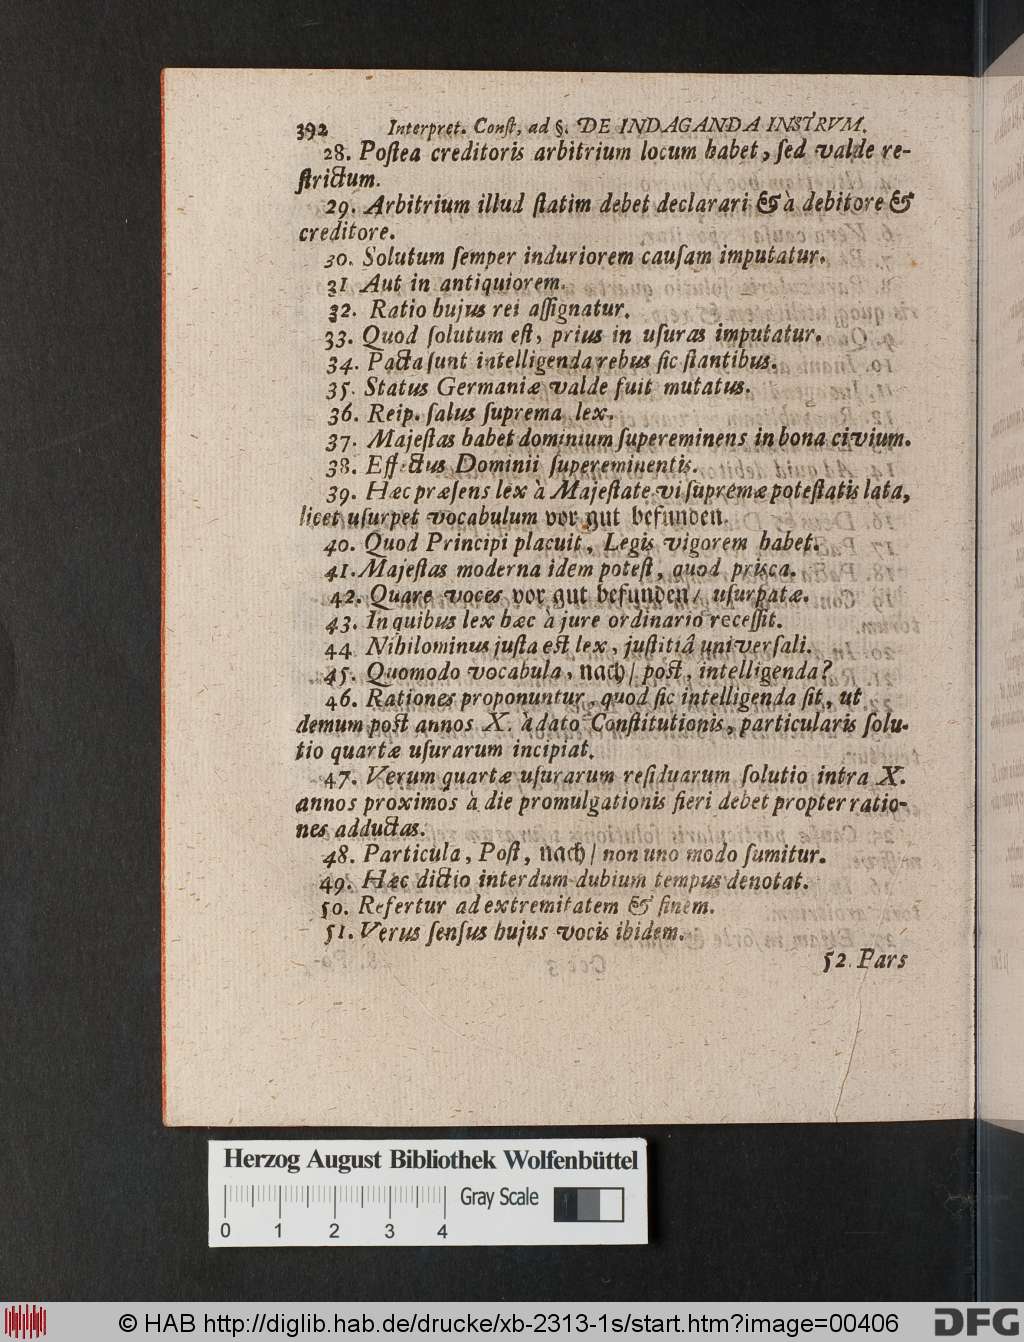 392 Interpret. Conſt, ad §. DE INDAGANDA INSTRVM.
28. Poſtea creditoris arbitrium locum habet, ſed valde re-
ſtrictum.
29. Arbitrium illud ſtatim debet declarari & à debitore &
creditore.
30. Solutum ſemper induriorem cauſam imputatur.
31 Aut in antiquiorem.
32. Ratio hujus rei aſſignatur.
33. Quod ſolutum eſt, prius in uſuras imputatur.
34. Pacta ſunt intelligenda rebus ſic ſtantibus.
35. Status Germaniæ valde fuit mutatus.
36. Reip. ſalus ſuprema lex.
37. Majeſtas habet dominium ſupereminens in bona civium.
38. Effectus Dominii ſupereminentis.
39. Hæc præſens lex à Majeſtate vi ſupremæ poteſtatis lata,
licet uſurpet vocabulum vor gut befunden.
40. Quod Principi placuit, Legis vigorem habet.
41. Majeſtas moderna idem poteſt, quod priſca.
42. Quare voces vor gut befunden / uſurpatæ.
43. In quibus lex hæc à jure ordinario receſſit.
44 Nihilominus juſta eſt lex, juſtitiâ univerſali.
45. Quomodo vocabula, nach / poſt, intelligenda?
46. Rationes proponuntur, quod ſic intelligenda ſit, ut
demum poſt annos X. à dato Conſtitutionis, particularis ſolu-
tio quartæ uſurarum incipiat.
47. Verum quartæ uſurarum reſiduarum ſolutio intra X.
annos proximos à die promulgationis fieri debet propter ratio-
nes adductas.
48. Particula, Poſt, nach / non uno modo ſumitur.
49. Hæc dictio interdum dubium tempus denotat.
50. Refertur ad extremitatem & finem.
51. Verus ſenſus hujus vocis ibidem.
52. Pars
Herzog August Bibliothek Wolfenbüttel
Gray Scale
0 1 2 3 4
© HAB http://diglib.hab.de/drucke/xb-2313-1s/start.htm?image=00406
DFG